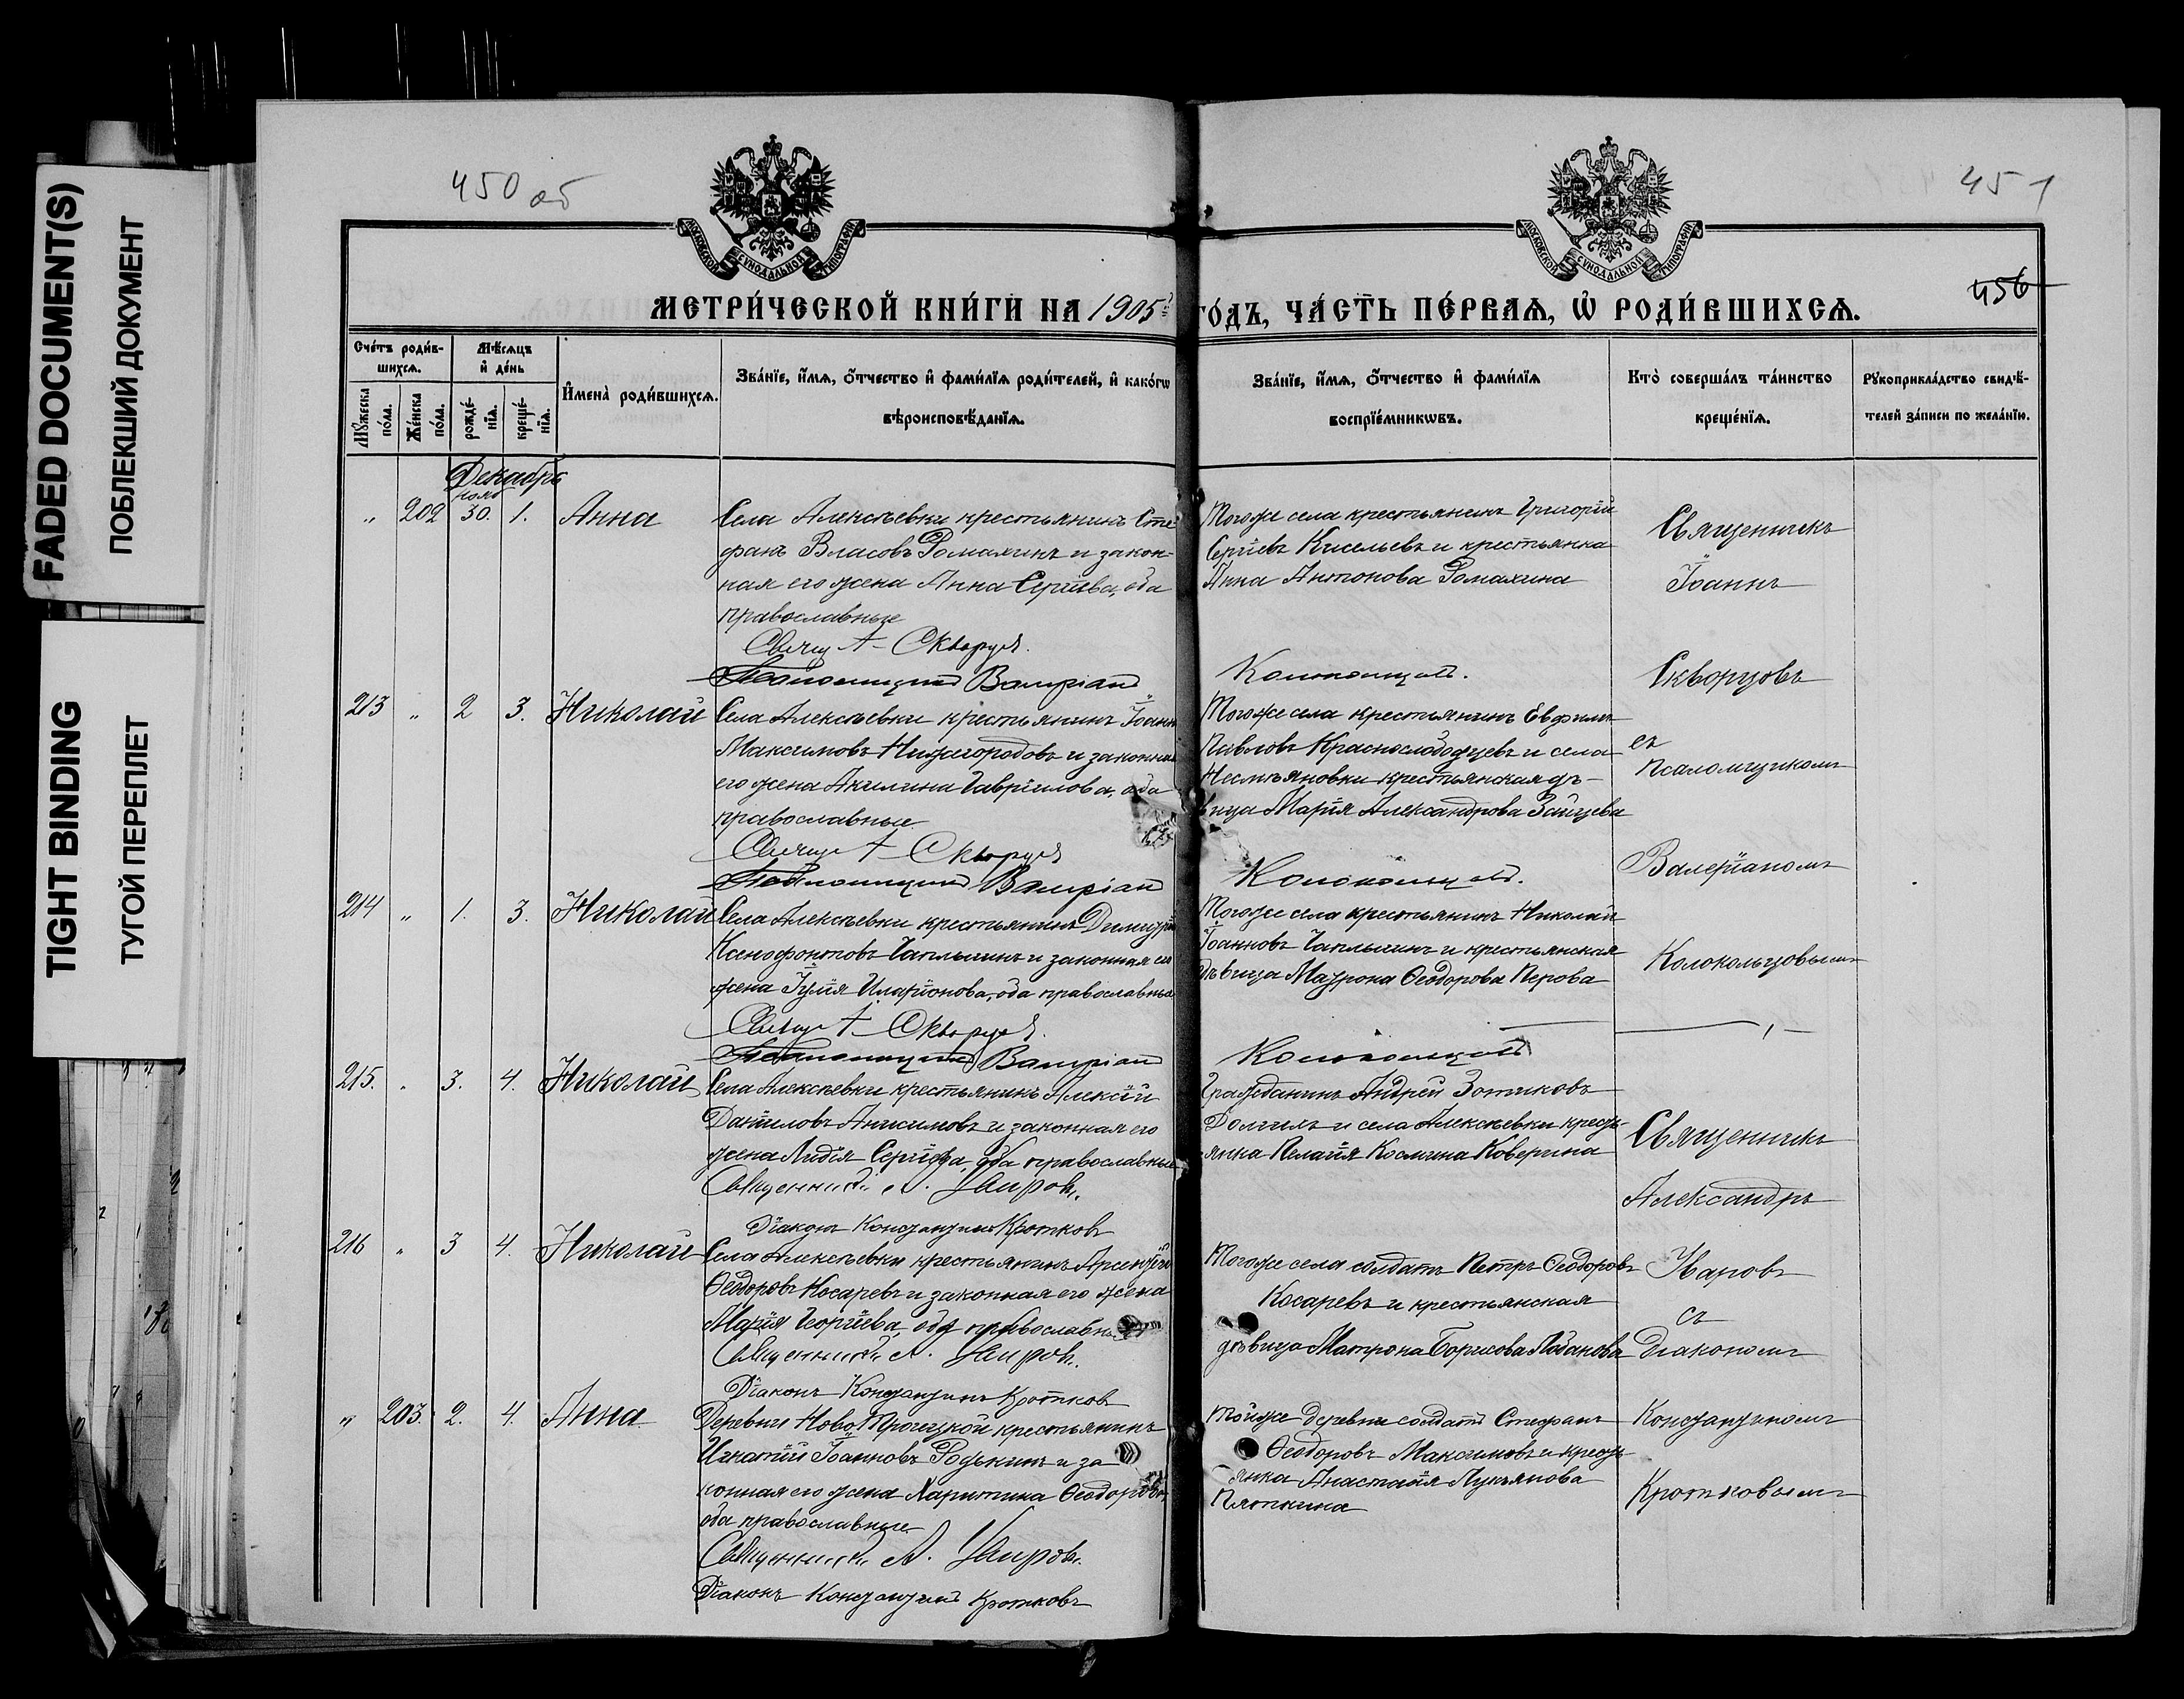 FADED DOCUMENT(S)
ПОБЛЕКШИЙ ДОКУМЕНТ
TIGHT BINDING
ТУГОЙ ПЕРЕПЛЕТ
450 об
451
456
МОСКОВСКОЙ СУНОДАЛЬНОЙ ТИПОГРАФІИ
МОСКОВСКОЙ СУНОДАЛЬНОЙ ТИПОГРАФІИ
МЕТРИ́ЧЕСКОЙ КНИ́ГИ НА 1905 ГО́ДЪ, ЧА́СТЬ ПЕ́РВАЯ, Ѡ РОДИ́ВШИХСЯ.
Сче́тъ роди́в-
шихся.
Мꙋжеска по́ла.
Же́нска по́ла.
Мѣ́сяцъ
и де́нь
рожде́-
нїя.
креще́-
нїя.
Имена̀ роди́вшихся.
Зва́нїе, и́мя, о́тчество и фами́лїя роди́телей, и како́гѡ
вѣроисповѣ́данїя.
Зва́нїе, и́мя, о́тчество и фами́лїя
воспрїе́мникѡвъ.
Кто̀ соверша́лъ та́инство
креще́нїя.
Рꙋкоприкла́дство свидѣ́-
телей за́писи по жела́нїю.
Декабрь
нояб
" 202 30. 1. Анна
Села Алексѣевки крестьянинъ Сте-
фанъ Власовъ Ромахинъ и закон-
ная его жена Анна Сергіева, оба
православные
Свящ А Скворцовъ.
Псаломщикъ Валеріанъ Колокольцовъ.
Тогоже села крестьянинъ Григорій
Сергіевъ Кисельевъ и крестьянка
Анна Антонова Ромахина
Священникъ
Іоаннъ
Скворцовъ
213 " 2 3. Николай
Села Алексѣевки крестьянинъ Іоаннъ
Максимовъ Нижегородовъ и законная
его жена Акилина Гавріилова, оба
православные
Свящ А Скворцовъ
Псаломщикъ Валеріанъ Колокольцовъ.
Тогоже села крестьянинъ Евфимъ
Павловъ Краснослободцевъ и села
Несмѣяновки крестьянская дѣ-
вица Марія Александрова Зайцева
съ
Псаломщикомъ
Валеріаномъ
214 " 1. 3. Николай
Села Алексѣевки крестьянинъ Димитрій
Ксенофонтовъ Чаплыгинъ и законная его
жена Іулія Иларіонова, оба православные
Свящ А Скворцовъ.
Псаломщикъ Валеріанъ Колокольцовъ
Тогоже села крестьянинъ Николай
Іоанновъ Чаплыгинъ и крестьянская
дѣвица Матрона Ѳеодорова Перова
Колокольцовымъ
215. " 3. 4. Николай
Села Алексѣевки крестьянинъ Алексій
Даніиловъ Анисимовъ и законная его
жена Лидія Сергіева, оба православные
Священникъ А. Уваровъ.
Діаконъ Константинъ Кротковъ
Гражданинъ Андрей Зотиковъ
Долгихъ и села Алексѣевки кресть-
янка Пелагія Космина Коверина
Священникъ
Александръ
216 " 3 4. Николай
Села Алексѣевки крестьянинъ Арсеній
Ѳеодоровъ Косаревъ и законная его жена
Марія Георгіева, оба православны
Священникъ А. Уваровъ.
Діаконъ Константинъ Кротковъ
Тогоже села солдатъ Петръ Ѳеодоровъ
Косаревъ и крестьянская
дѣвица Матрона Борисова Лобанова
Уваровъ
съ
Діакономъ
" 203. 2. 4. Анна
Деревни Ново-Троицкой крестьянинъ
Игнатій Іоанновъ Родькинъ и за
конная его жена Харитина Ѳеодорова,
оба православные
Священникъ А. Уваровъ.
Діаконъ Константинъ Кротковъ
Тойже деревни солдатъ Стефанъ
Ѳеодоровъ Максимовъ и кресть-
янка Анастасія Лукьянова
Пяткина
Константиномъ
Кротковымъ